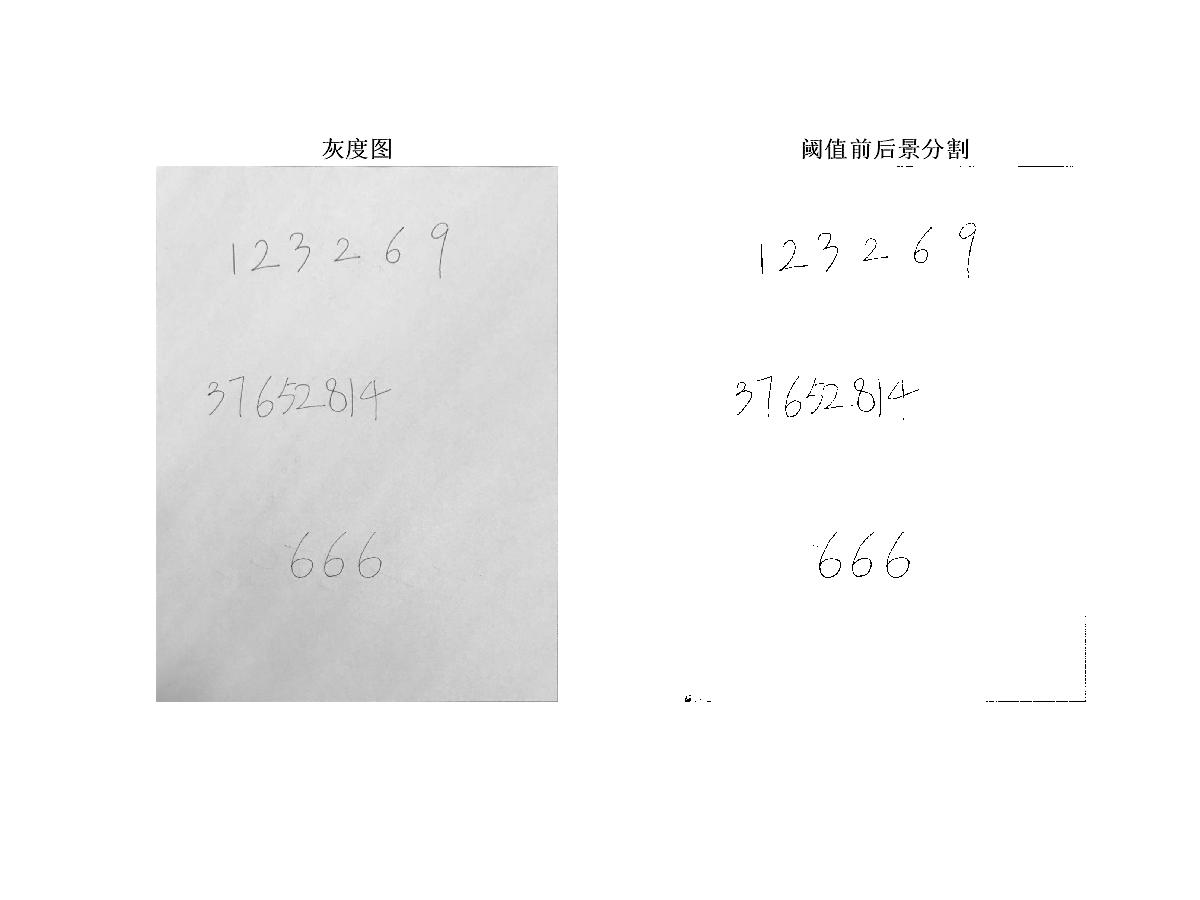 灰度图
123269
37652814
666
阈值前后景分割
123269
37652814
666